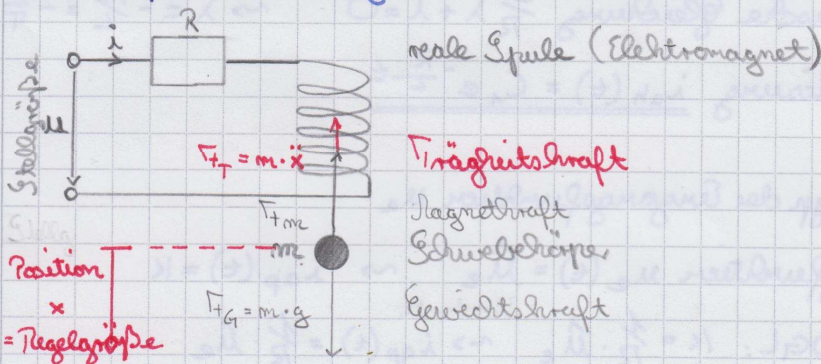 R
i
reale Spule (Elektromagnet)
Stellgröße
u
F_T = m·ẍ
Trägheitskraft
F_m
Magnetkraft
m
Schwebekörper
Position
x
= Regelgröße
F_G = m·g
Gewichtskraft